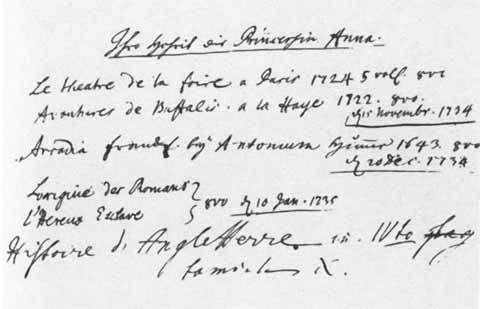 Ihro Hoheit die Princessin Anna.
Le theatre de la foire a Paris 1724 5 voll. 8vo
Avantures de Buffalis. a la Haye 1722. 8vo.
d 15 Novembr. 1734
Arcadia by Antonium 1643. 8vo
d 20 Dec. 1734
L'origine der Romans
L'Hereux Esclave } 8vo d 10 Jan. 1735
Histoire d'Angleterre in IVto
X.